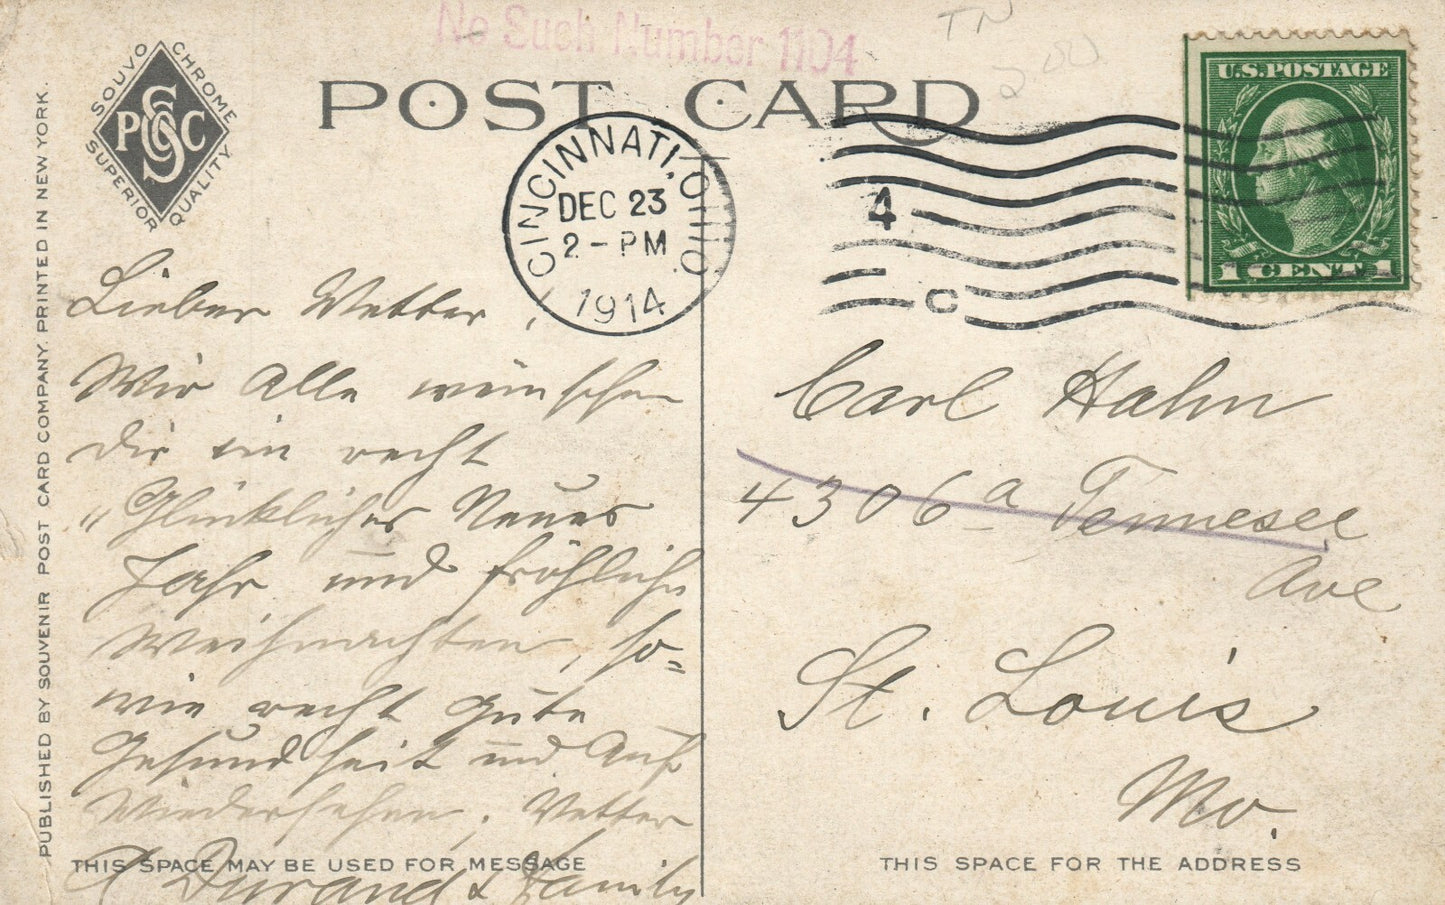 No Such Number 1104
TN
200
POST CARD
SOUVOCHROME
PSCC
SUPERIOR QUALITY
CINCINNATI, OHIO
DEC 23
2 - PM
1914
4
C
U.S. POSTAGE
1 CENT 1
PUBLISHED BY SOUVENIR POST CARD COMPANY. PRINTED IN NEW YORK.
Lieber Vetter,
Wir Alle wünschen
dir ein recht
"Glückliches Neues
Jahr und fröhliche
Weihnachten, so=
wie recht gute
Gesundheit und Auf
Wiedersehen. Vetter
A Durand & Family
THIS SPACE MAY BE USED FOR MESSAGE
Carl Hahn
4306a Tennesee
Ave
St. Louis
Mo.
THIS SPACE FOR THE ADDRESS